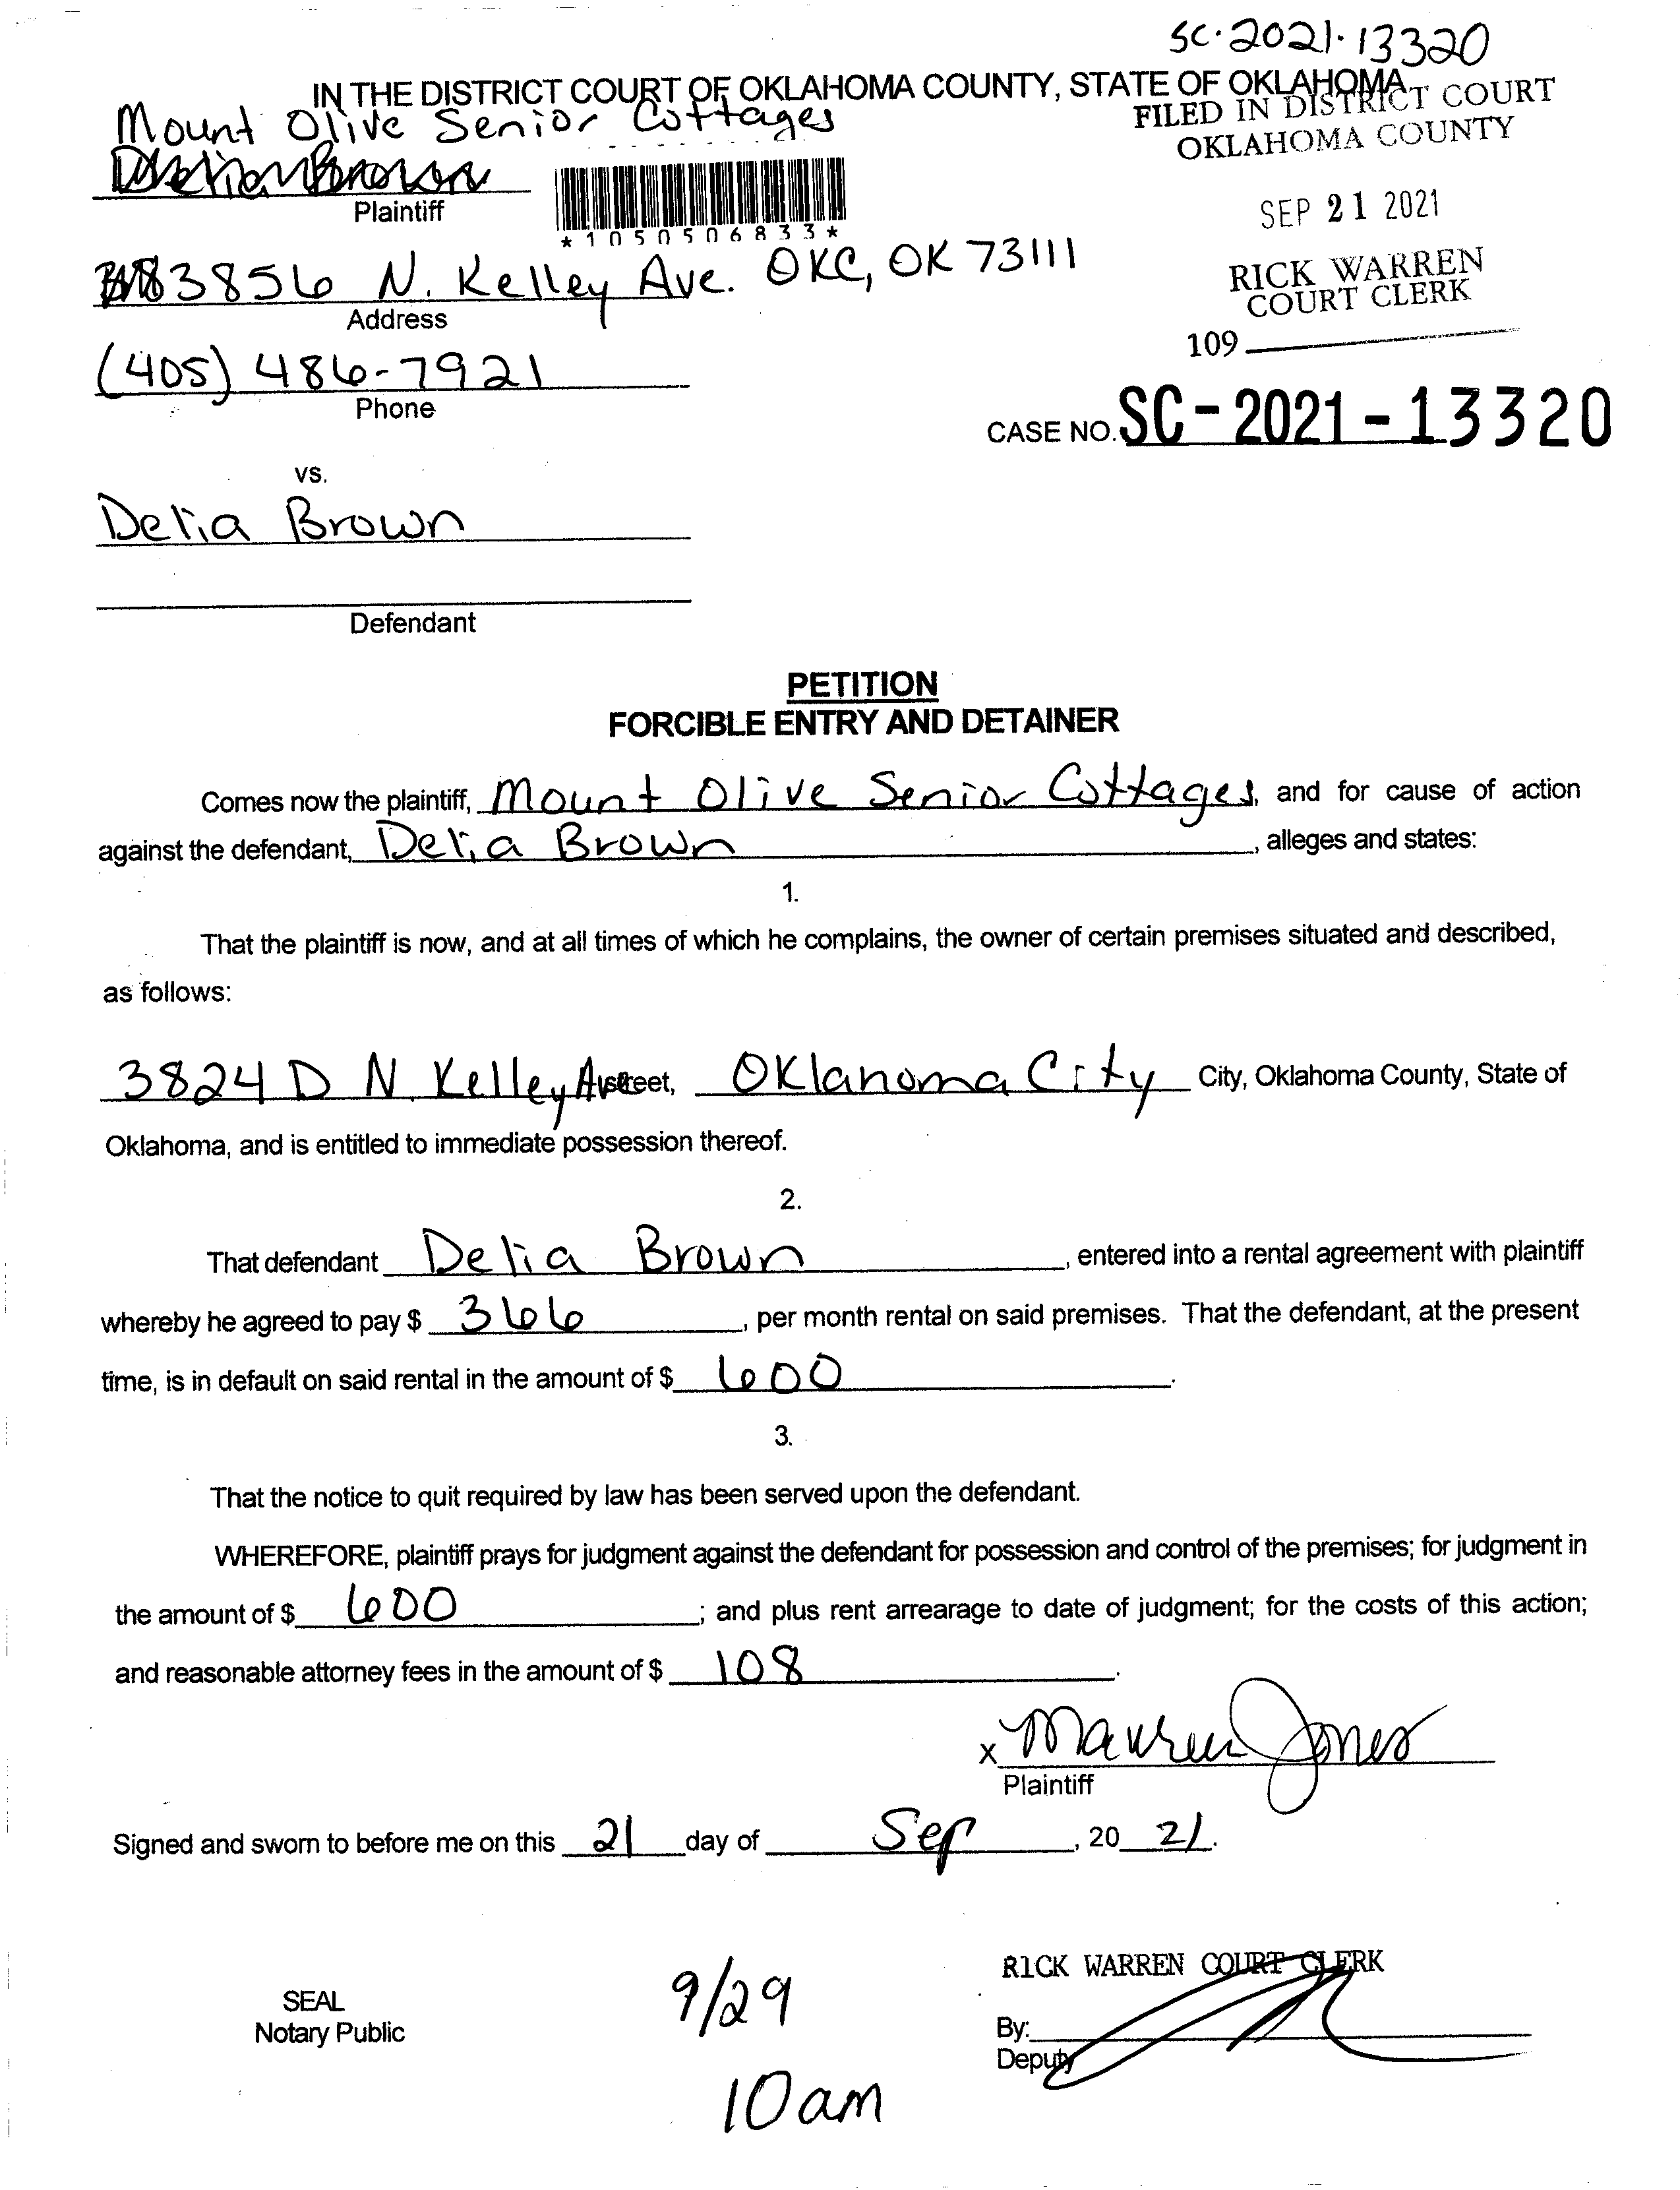 SC·2021·13320
IN THE DISTRICT COURT OF OKLAHOMA COUNTY, STATE OF OKLAHOMA
FILED IN DISTRICT COURT
OKLAHOMA COUNTY
Mount Olive Senior Cottages
Delia Brown
Plaintiff
*1050506833*
SEP 21 2021
3856 N. Kelley Ave. OKC, OK 73111
Address
RICK WARREN
COURT CLERK
109
(405) 486-7921
Phone
CASE NO. SC-2021-13320
vs.
Delia Brown
Defendant
PETITION
FORCIBLE ENTRY AND DETAINER
Comes now the plaintiff, Mount Olive Senior Cottages, and for cause of action
against the defendant, Delia Brown, alleges and states:
1.
That the plaintiff is now, and at all times of which he complains, the owner of certain premises situated and described,
as follows:
3824 D N. Kelley Ave Street, Oklahoma City City, Oklahoma County, State of
Oklahoma, and is entitled to immediate possession thereof.
2.
That defendant Delia Brown, entered into a rental agreement with plaintiff
whereby he agreed to pay $ 366, per month rental on said premises. That the defendant, at the present
time, is in default on said rental in the amount of $ 600.
3.
That the notice to quit required by law has been served upon the defendant.
WHEREFORE, plaintiff prays for judgment against the defendant for possession and control of the premises; for judgment in
the amount of $ 600; and plus rent arrearage to date of judgment; for the costs of this action;
and reasonable attorney fees in the amount of $ 108.
x Maureen Jones
Plaintiff
Signed and sworn to before me on this 21 day of Sep, 20 21.
RICK WARREN COURT CLERK
SEAL
Notary Public
9/29
By:
Deputy
10am